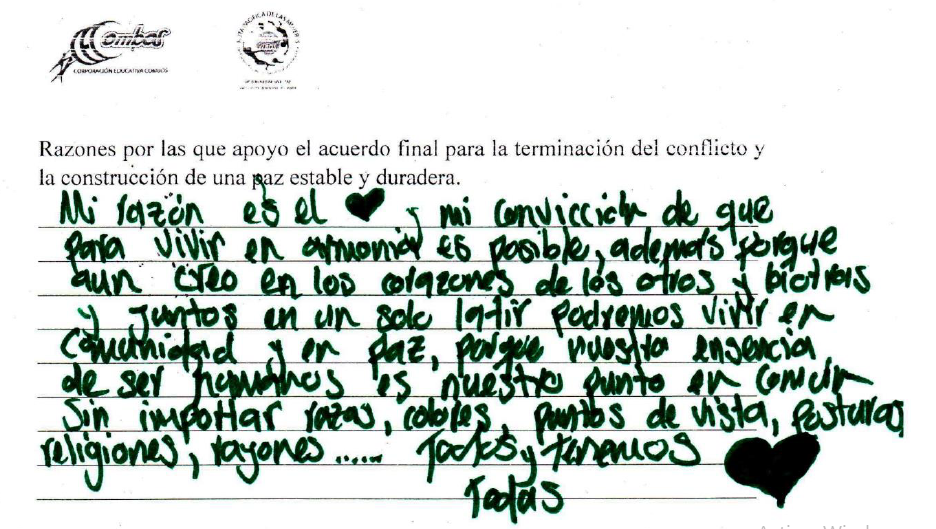 Combos
CORPORACIÓN EDUCATIVA COMBOS
Razones por las que apoyo el acuerdo final para la terminación del conflicto y
la construcción de una paz estable y duradera.
Mi razón es el ♥ y mi convicción de que
para vivir en armonia es posible, además porque
aun creo en los corazones de los otros y
y juntos en un solo latir podremos vivir en
Comunidad y en paz, porque nuestra ensencia
de ser humanos es nuestro punto en comun
Sin importar razas, colores, puntos de vista, posturas
religiones, rayones ...... Todos y tenemos ♥
Todas